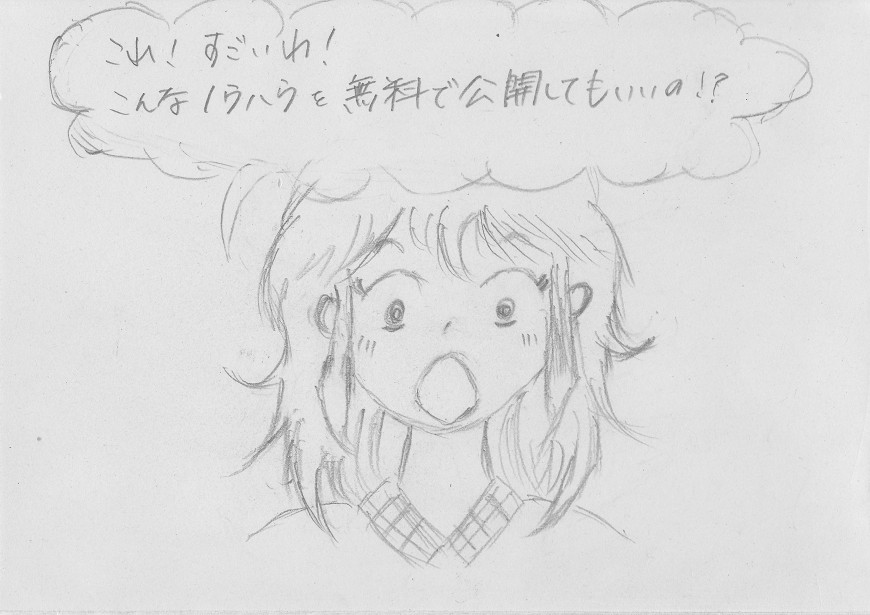 これ！すごいわ！
こんなノウハウを無料で公開してもいいの！？